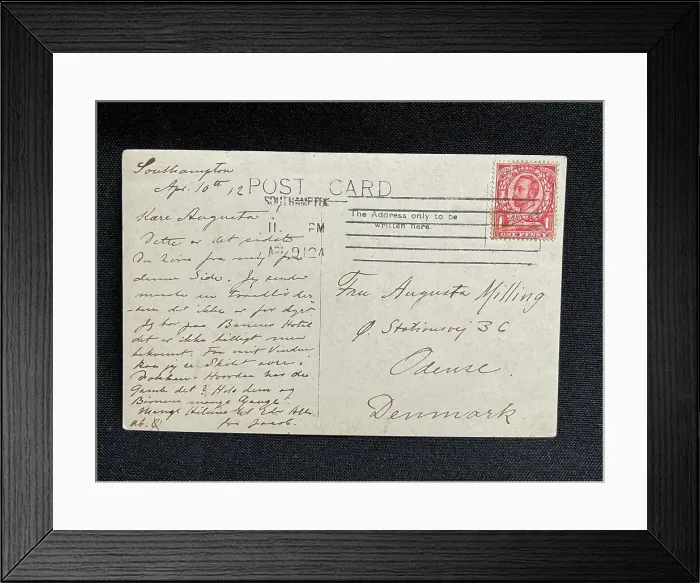 Southampton
Apr. 10th, 12
POST CARD
SOUTHAMPTON
11 PM
AP 12
The Address only to be
written here.
1 1
ONE PENNY
Kære Augusta!
Dette er det sidste
Du faa fra mig paa
denne Side. Jeg sender
maske en
det ikke er for dyrt
Jeg bor paa Hotel
det er ikke billigt men
bekvemt. Fra mit Vindue
kan jeg se
Hvordan har de
Gamle det? Hils dem og
Børnene mange Gange.
Mange Hilsener til Eder Alle
fra Jacob.
Fru Augusta Milling
Ø. Stationsvej 36
Odense.
Denmark.